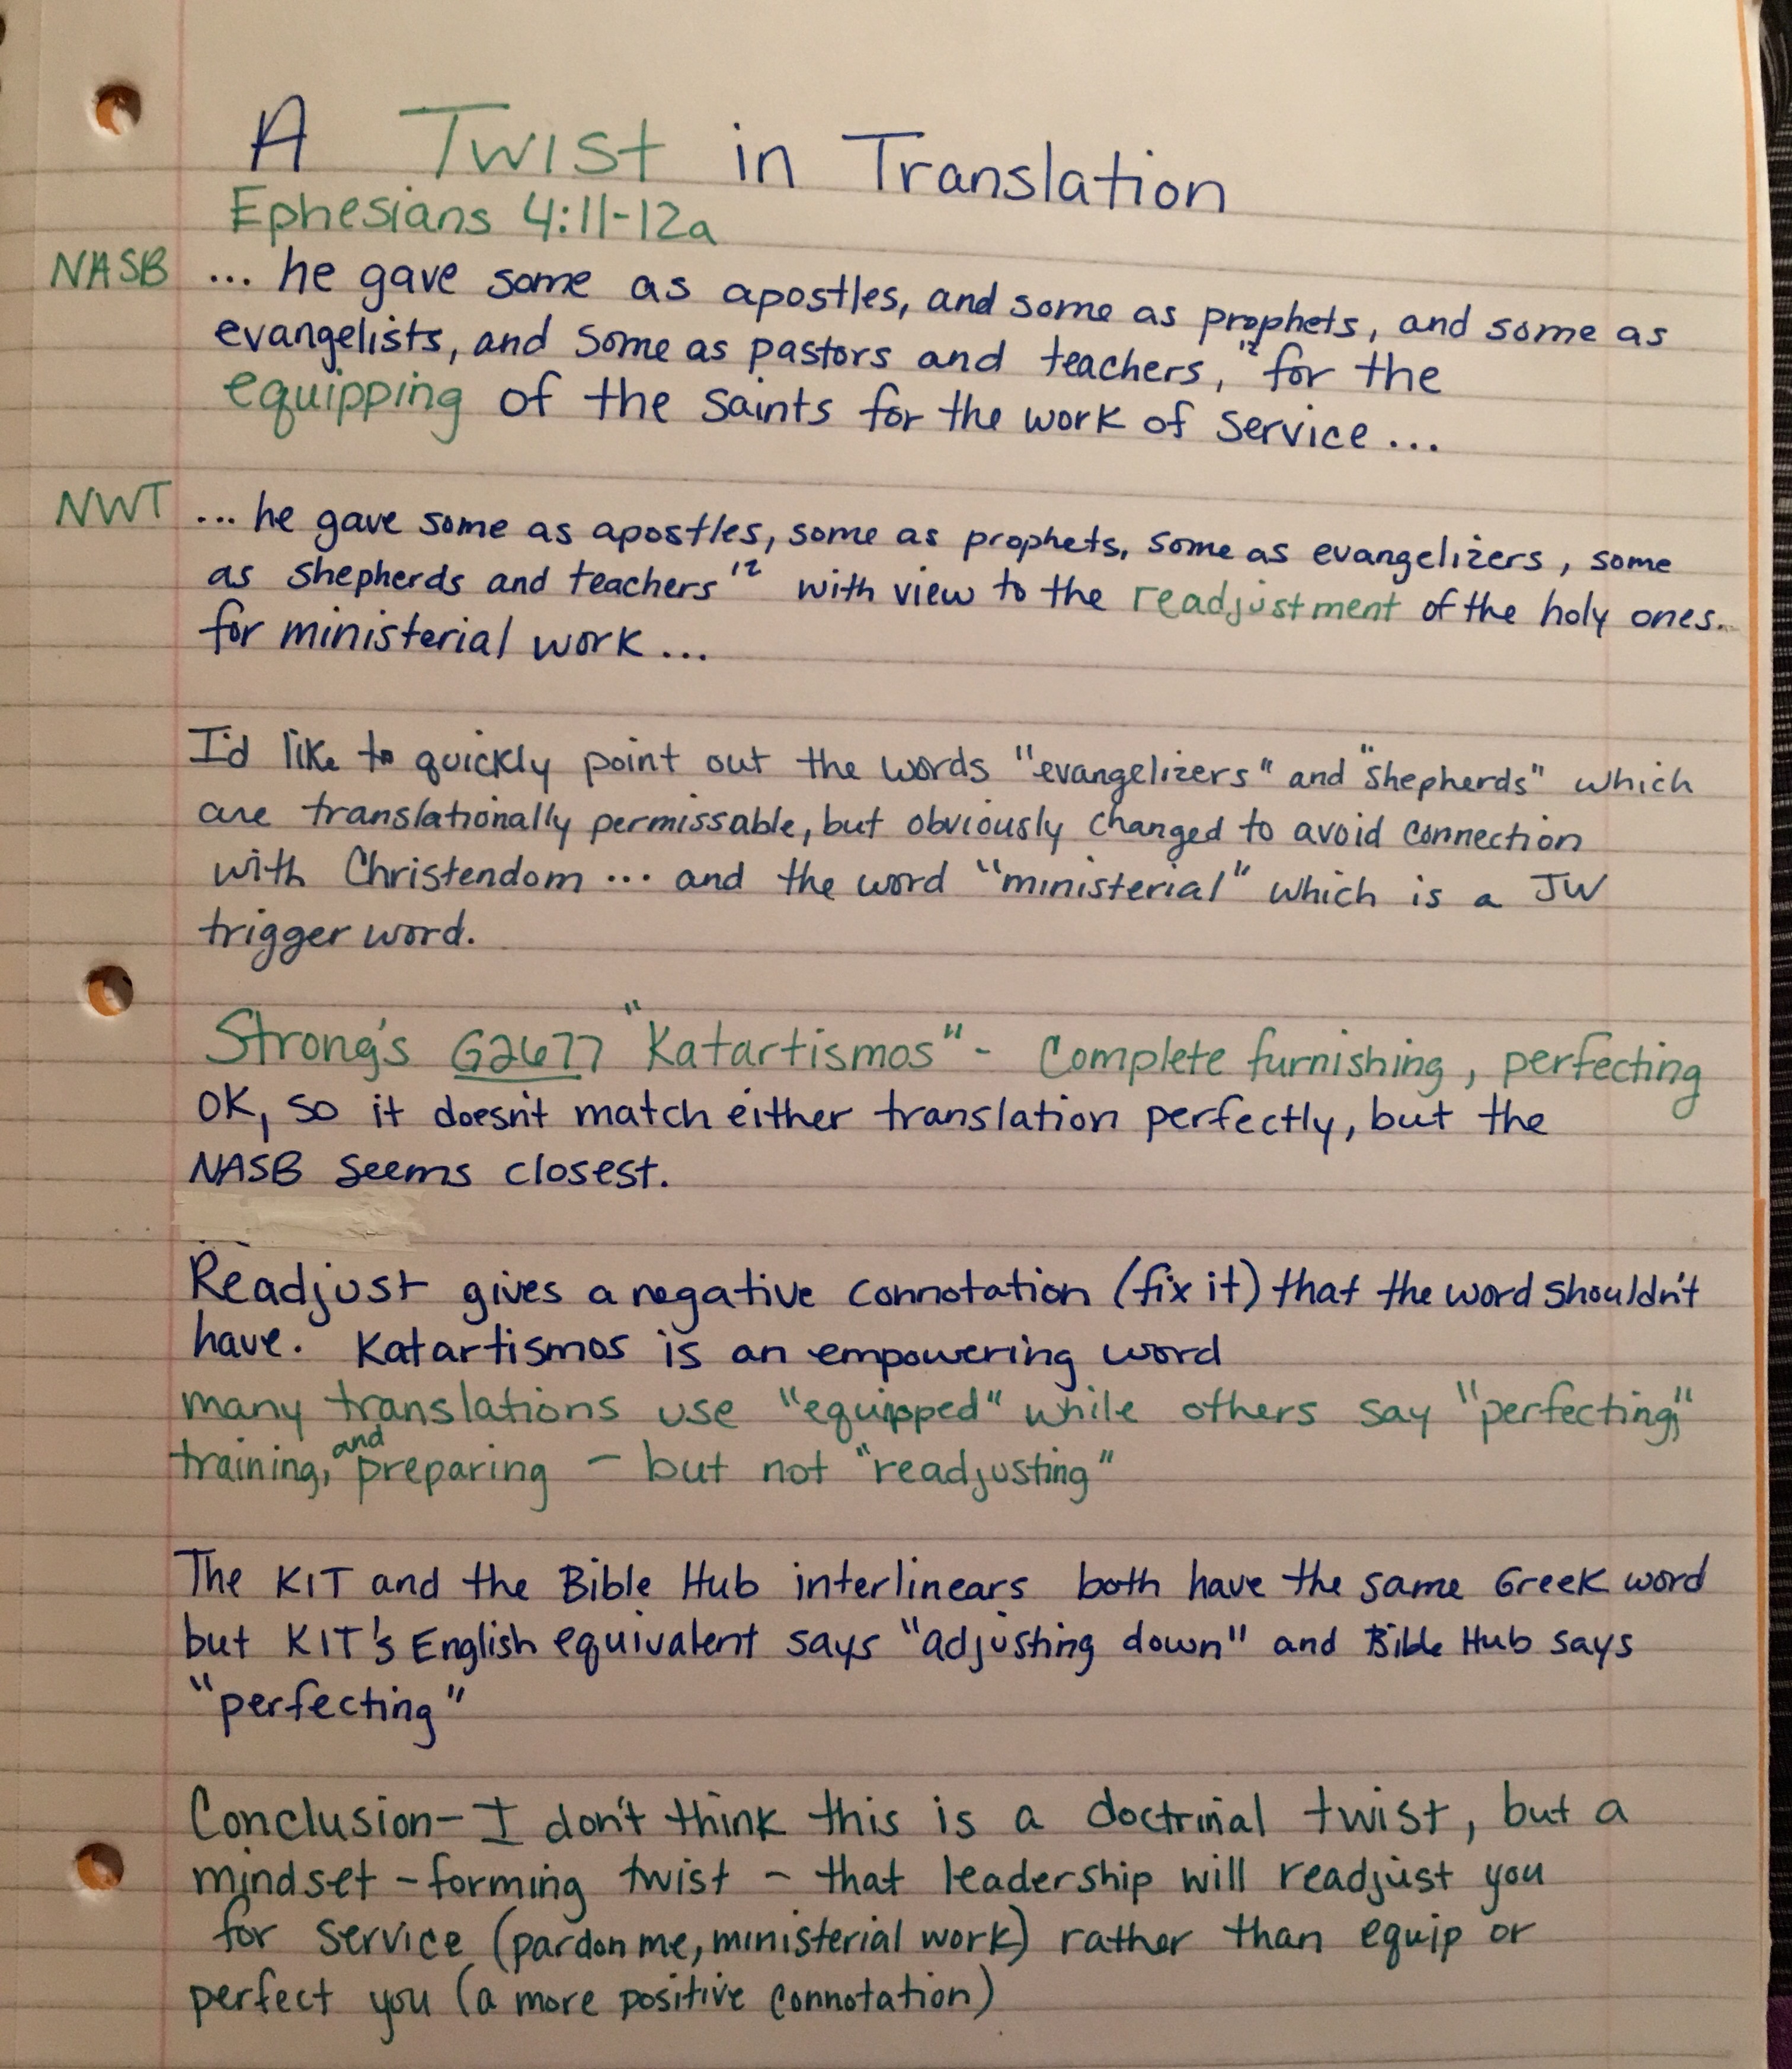 A Twist in Translation
Ephesians 4:11-12a
NASB ... he gave some as apostles, and some as prophets, and some as
evangelists, and some as pastors and teachers, 12 for the
equipping of the saints for the work of service...
NWT ... he gave some as apostles, some as prophets, some as evangelizers, some
as shepherds and teachers 12 with view to the readjustment of the holy ones..
for ministerial work...
I'd like to quickly point out the words "evangelizers" and "shepherds" which
are translationally permissable, but obviously changed to avoid connection
with Christendom ... and the word "ministerial" which is a JW
trigger word.
Strong's G2677 "Katartismos" - Complete furnishing, perfecting
OK, so it doesn't match either translation perfectly, but the
NASB seems closest.
Readjust gives a negative connotation (fix it) that the word shouldn't
have. Katartismos is an empowering word
many translations use "equipped" while others say "perfecting,"
training, and preparing - but not "readjusting"
The KIT and the Bible Hub interlinears both have the same Greek word
but KIT's English equivalent says "adjusting down" and Bible Hub says
"perfecting"
Conclusion - I don't think this is a doctrinal twist, but a
mindset-forming twist - that leadership will readjust you
for service (pardon me, ministerial work) rather than equip or
perfect you (a more positive connotation)